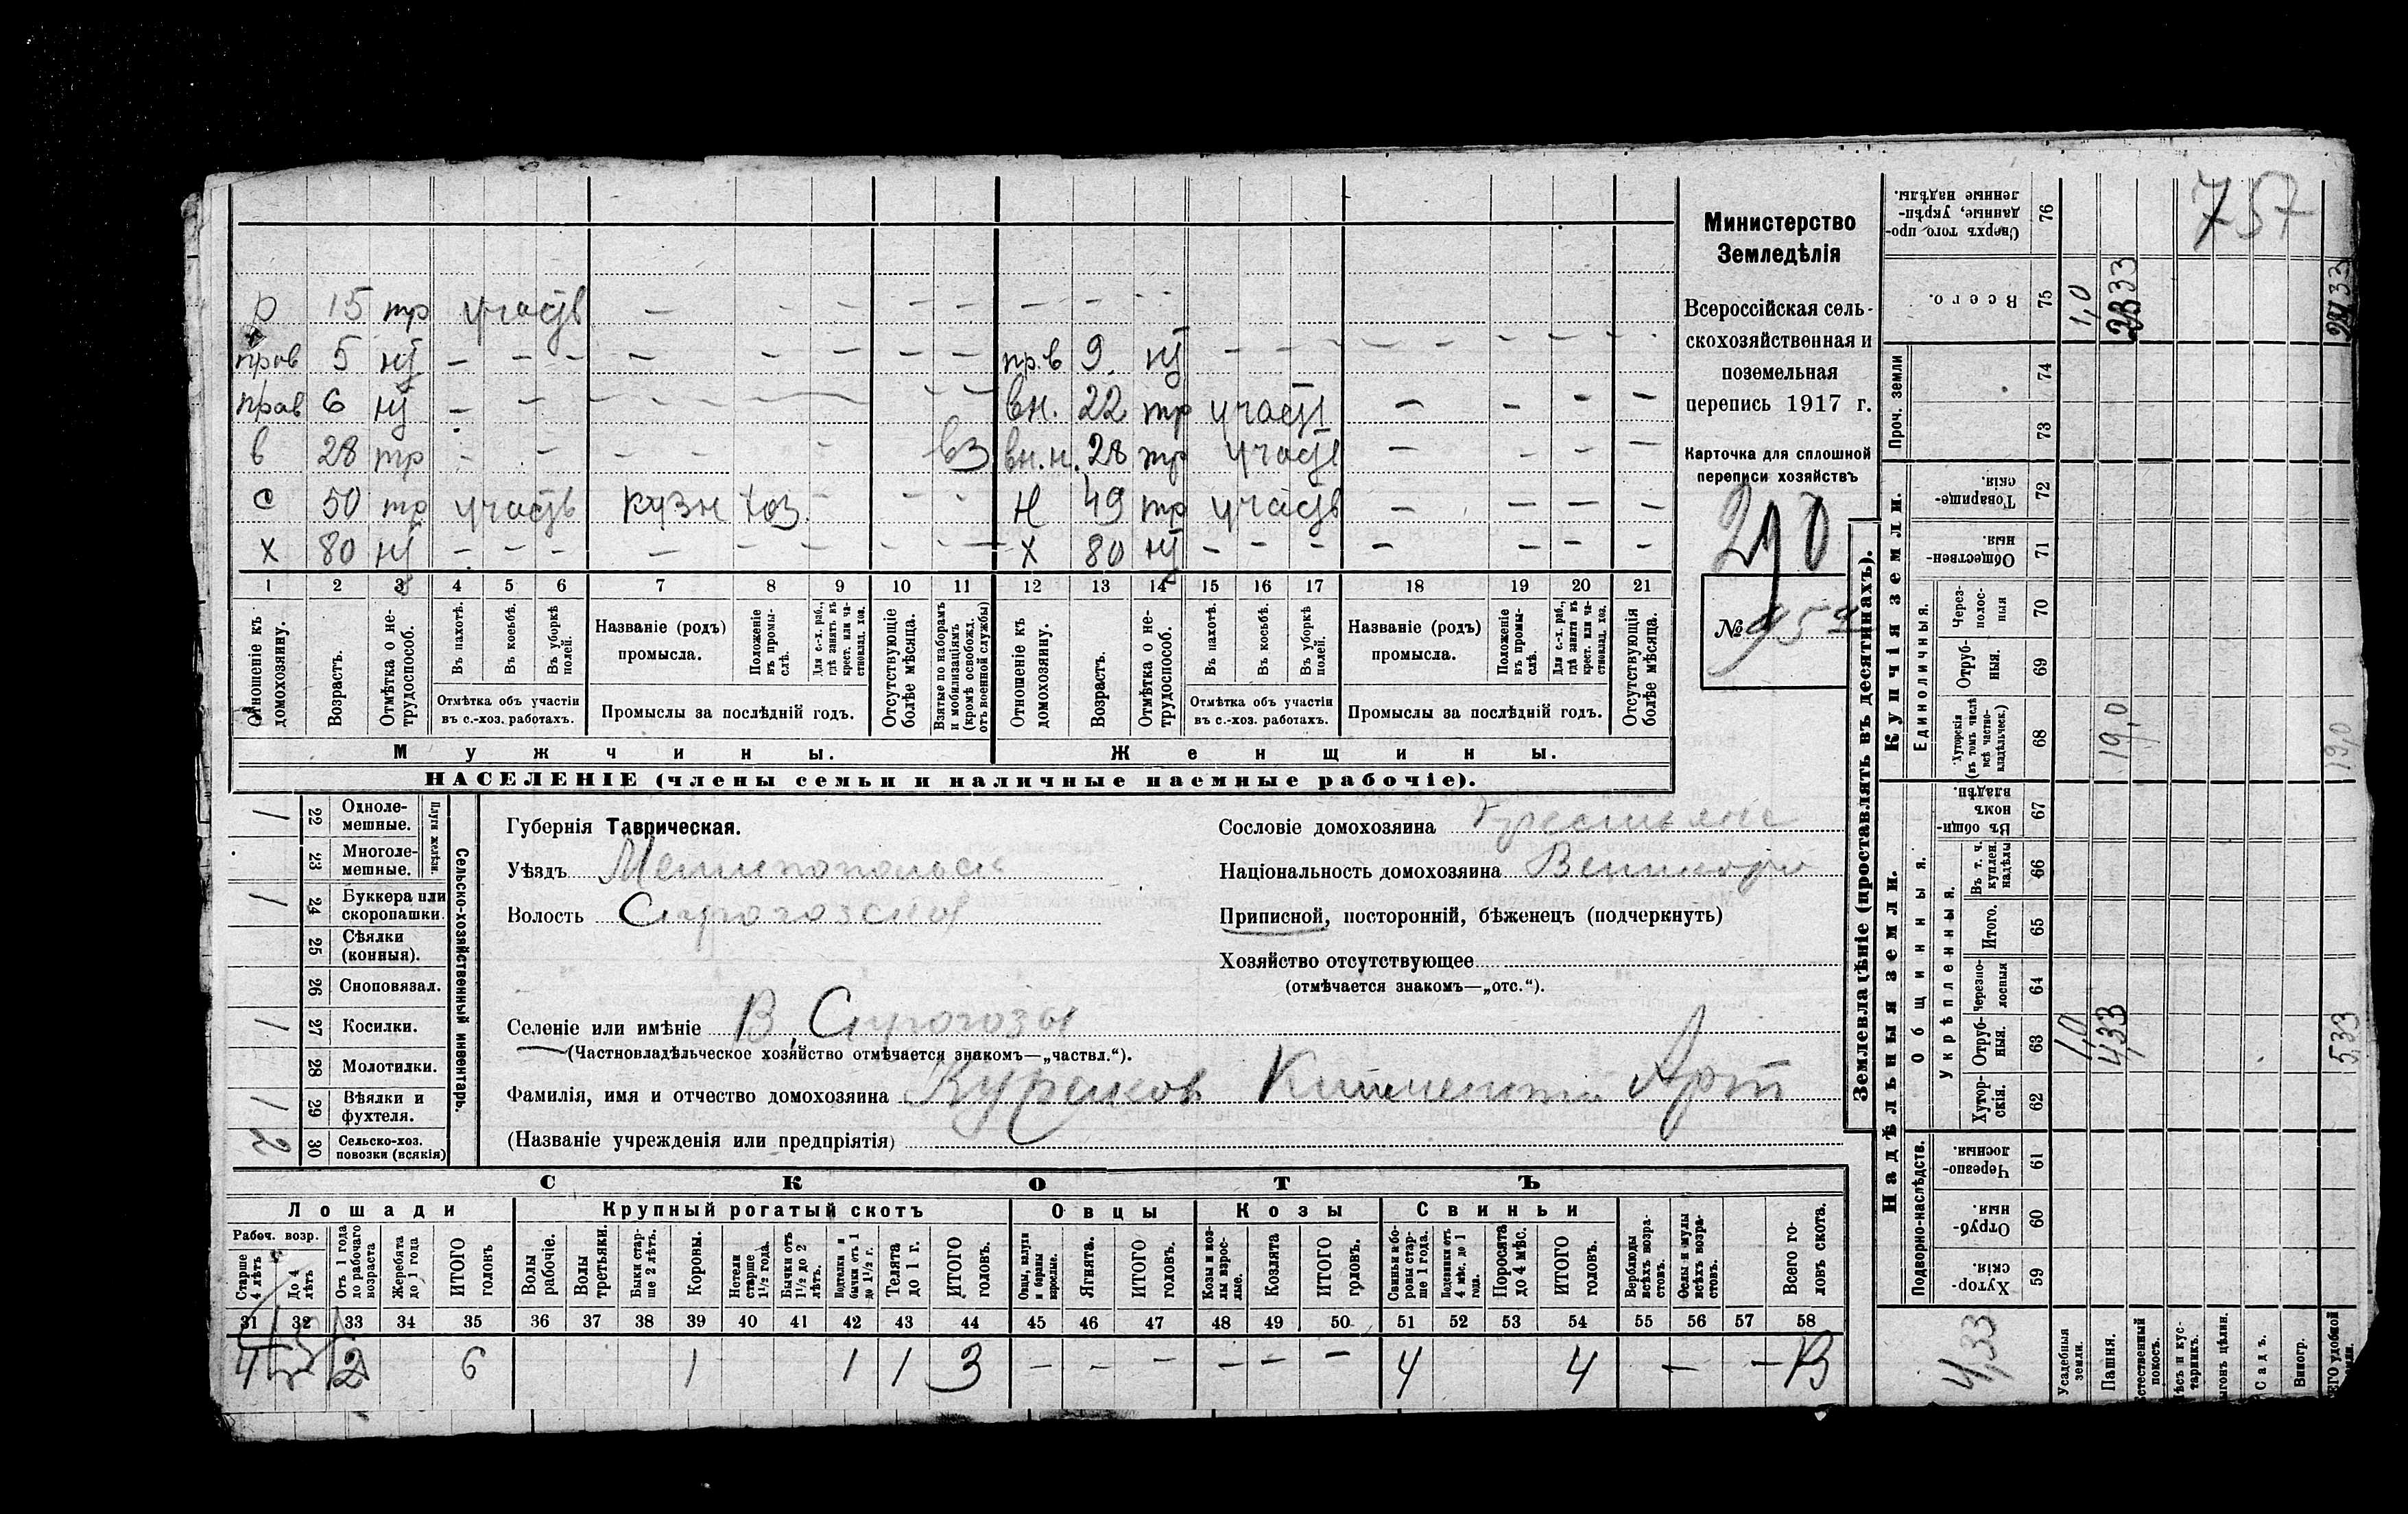 р 15 тр участв — — — — — — — — —
пров 5 нт — — — — — — — — пр.в 9. нт — — — — — — —
прав 6 нт — — — — — — — — вн. 22 тр участ — — — —
в 28 тр — — — — — — вз вн.н. 28 тр участ — — — —
с 50 тр участв кузн хоз. — — — Н 49 тр участв — — — —
х 80 нт — — — — — — — — х 80 нт — — — — — — —
1 2 3 4 5 6 7 8 9 10 11 12 13 14 15 16 17 18 19 20 21
Отношеніе къ домохозяину.
Возрастъ.
Отмѣтка о нетрудоспособ.
Въ пахотѣ.
Въ косьбѣ.
Въ уборкѣ полей.
Отмѣтка объ участіи
въ с.-хоз. работахъ.
Названіе (родъ)
промысла.
Положеніе въ промыслѣ.
Для с.-х. раб., гдѣ занятъ въ крест. или частновлад. хоз.
Промыслы за послѣдній годъ.
Отсутствующіе болѣе мѣсяца.
Взятые по наборамъ и мобилизаціямъ (кромѣ освобожд. отъ военной службы)
Отношеніе къ домохозяину.
Возрастъ.
Отмѣтка о нетрудоспособ.
Въ пахотѣ.
Въ косьбѣ.
Въ уборкѣ полей.
Отмѣтка объ участіи
въ с.-хоз. работахъ.
Названіе (родъ)
промысла.
Положеніе въ промыслѣ.
Для с.-х. раб., гдѣ занята въ крест. или частновлад. хоз.
Промыслы за послѣдній годъ.
Отсутствующія болѣе мѣсяца.
Мужчины. Женщины.
НАСЕЛЕНІЕ (члены семьи и наличные наемные рабочіе).
Министерство
Земледѣлія
Всероссійская сель-
скохозяйственная и
поземельная
перепись 1917 г.
Карточка для сплошной
переписи хозяйствъ
290
№ 95
Сельско-хозяйственный инвентарь.
Плуги желѣзн.
1 22 Одноле-
мешные.
23 Многоле-
мешные.
1 24 Буккера или
скоропашки.
25 Сѣялки
(конныя).
26 Сноповязал.
1 27 Косилки.
28 Молотилки.
1 29 Вѣялки и
фухтеля.
2 30 Сельско-хоз.
повозки (всякія)
Губернія Таврическая.
Уѣздъ Мелитопольск
Волость Сирогозская
Селеніе или имѣніе В. Сирогозы
(Частновладѣльческое хозяйство отмѣчается знакомъ—„частвл.“).
Фамилія, имя и отчество домохозяина Кураков Климентій Арт
(Названіе учрежденія или предпріятія)
Сословіе домохозяина Крестьяне
Національность домохозяина Великор
Приписной, посторонній, бѣженецъ (подчеркнуть)
Хозяйство отсутствующее
(отмѣчается знакомъ—„отс.“).
СКОТЪ
Лошади Крупный рогатый скотъ Овцы Козы Свиньи
Рабоч. возр.
Старше 4 лѣтъ
До 4 лѣтъ
Отъ 1 года до рабочаго возраста
Жеребята до 1 года
ИТОГО головъ
Волы рабочіе.
Волы третьяки.
Быки старше 2 лѣтъ.
Коровы.
Нетели старше 1½ года.
Бычки отъ 1½ до 2 лѣтъ.
Подтелки и бычки отъ 1 до 1½ г.
Телята до 1 г.
ИТОГО головъ.
Овцы, валухи и бараны взрослые.
Ягнята.
ИТОГО головъ.
Козы и козлы взрослые.
Козлята
ИТОГО головъ.
Свиньи и боровы старше 1 года.
Подсвинки отъ 4 мѣс. до 1 года.
Поросята до 4 мѣс.
ИТОГО головъ.
Верблюды всѣхъ возрастовъ.
Ослы и мулы всѣхъ возрастовъ.
Всего головъ скота.
31 32 33 34 35 36 37 38 39 40 41 42 43 44 45 46 47 48 49 50 51 52 53 54 55 56 57 58
4 2 6 1 1 1 3 — — — — — — 4 4 — — 13
Землевладѣніе (проставлять въ десятинахъ).
Купчія земли.
Надѣльныя земли.
Проч. земли
Единоличныя.
Общинныя.
Укрѣпленныя.
Подворно-наслѣдств.
Сверхъ того проданные, укрѣпленные надѣлы. 76
Всего. 75
74
73
Товарищескія. 72
Общественныя. 71
Черезполосныя 70
Отрубныя. 69
Хуторскія (въ томъ числѣ всѣ частновладѣльческ.) 68
Въ общинномъ владѣн. 67
Въ т. ч. куплен. надѣлы 66
Итого. 65
Черезполосныя 64
Отрубныя. 63
Хуторскія. 62
Черезполосныя. 61
Отрубныя. 60
Хуторскія. 59
757
1,0
19,0
19,0
1,0
4,33
5,33
4,33
Усадебныя земли.
Пашня.
стественный покосъ.
ѣсъ и кустарникъ.
ыгонъ цѣлин.
Садъ.
Виногр.
ЕГО удобной земли.